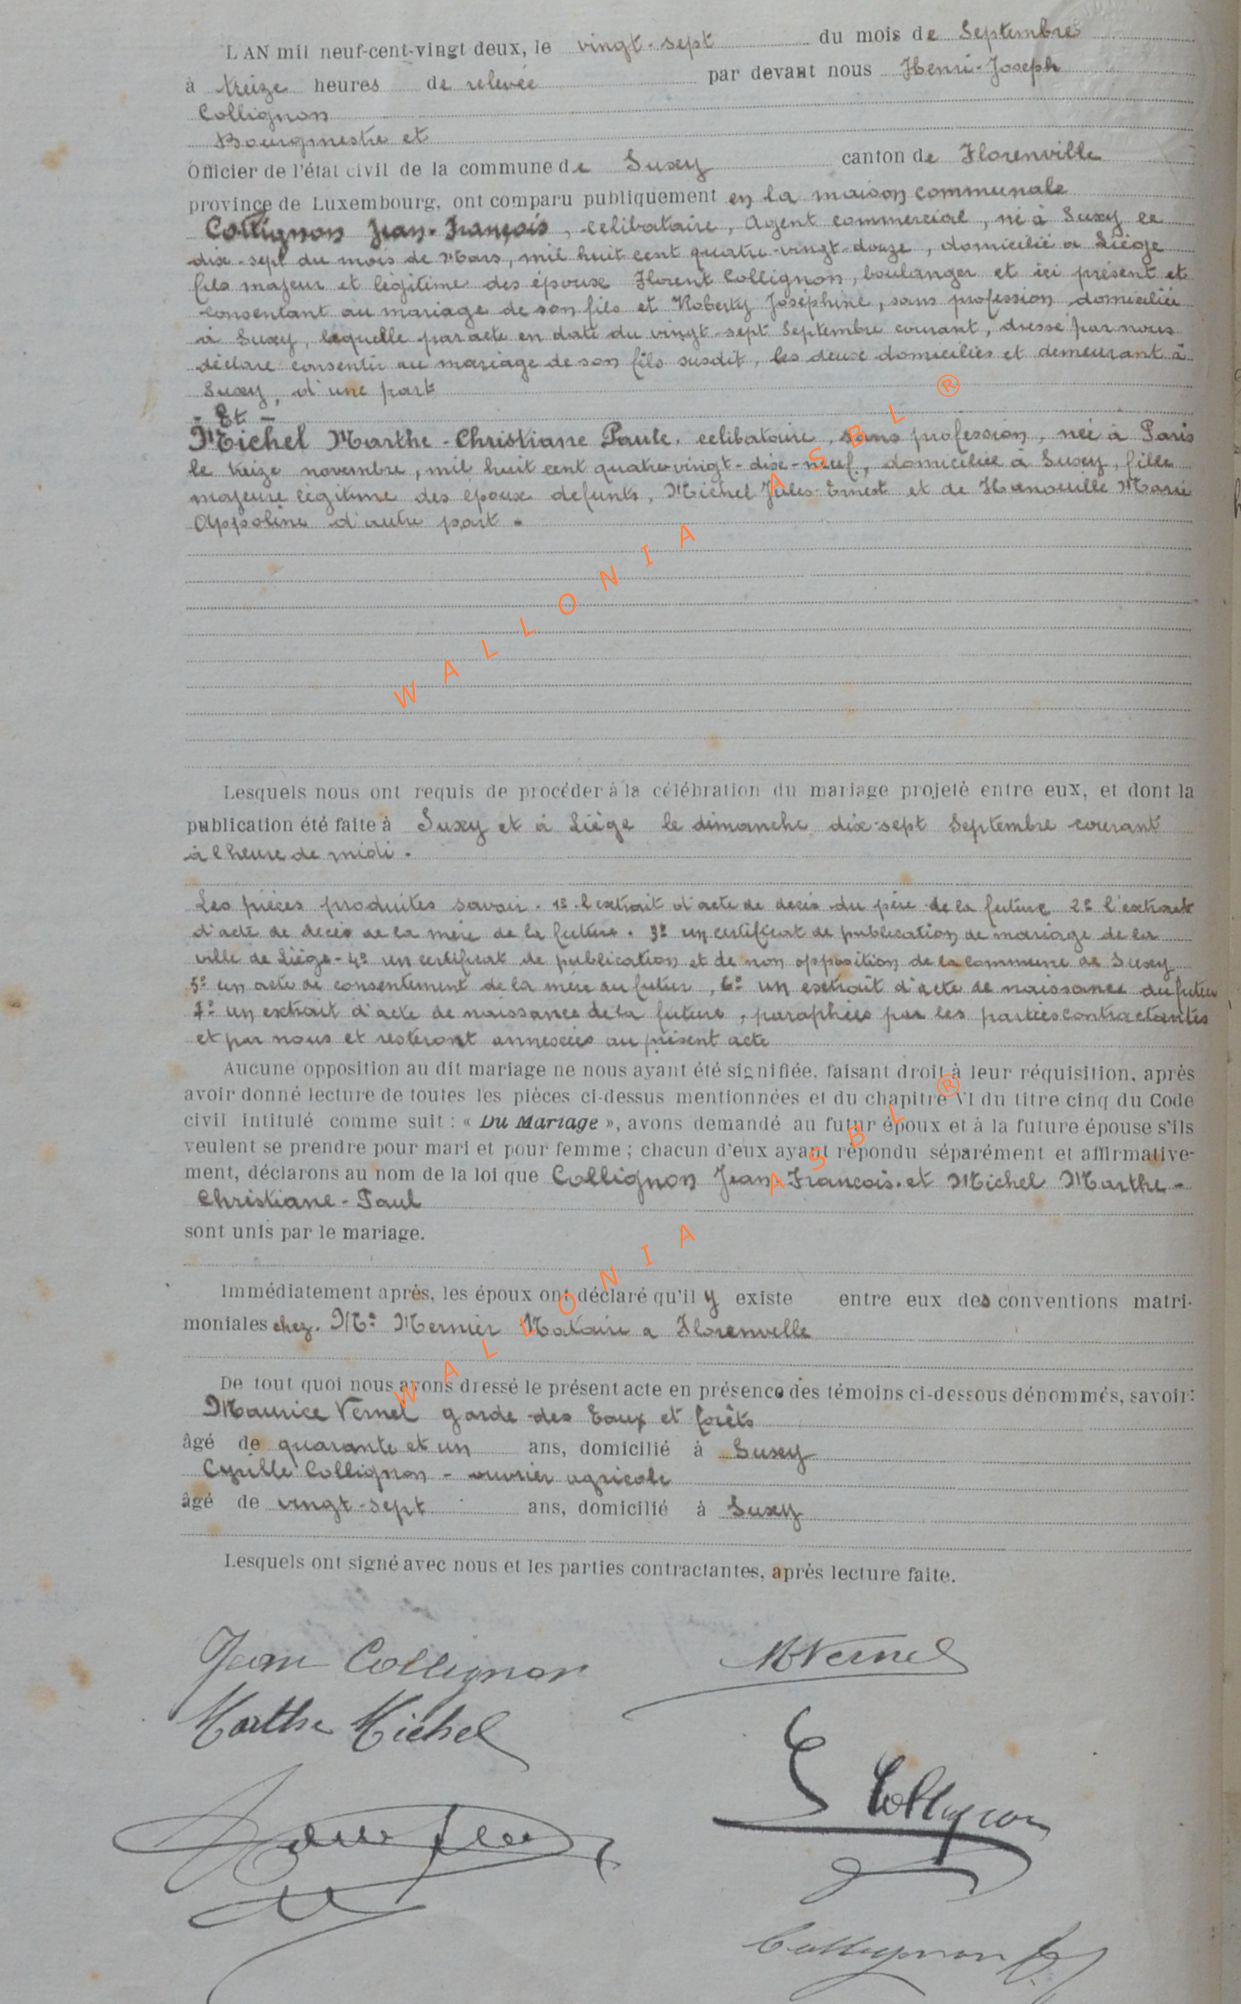 L AN mil neuf-cent-vingt deux, le vingt-sept du mois de Septembre
à treize heures de relevée par devant nous Henri-Joseph
Collignon
Bourgmestre et
Officier de l'état civil de la commune de Suxy canton de Florenville
province de Luxembourg, ont comparu publiquement en la maison communale
Collignon Jean-François, celibataire, Agent commercial, né à Suxy le
dix-sept du mois de Mars, mil huit cent quatre-vingt-douze, domicilié à Liége
fils majeur et légitime des époux Florent Collignon, boulanger et ici présent et
consentant au mariage de son fils et Roberty Joséphine, sans profession domiciliée
à Suxy, laquelle par acte en date du vingt-sept Septembre courant, dressé par nous
déclare consentir au mariage de son fils susdit, les deux domiciliés et demeurant à
Suxy, d'une part
- Et -
Michel Marthe-Christiane Paule, celibataire, sans profession, née à Paris
le treize novembre, mil huit cent quatre-vingt-dix-neuf, domiciliée à Suxy, fille
majeure légitime des époux défunts, Michel Jules-Ernest et de Hanouille Marie
Appoline d'autre part.
WALLONIA ASBL ®
Lesquels nous ont requis de procéder à la célébration du mariage projeté entre eux, et dont la
publication été faite à Suxy et à Liège le dimanche dix-sept Septembre courant
à l'heure de midi.
Les pièces produites savoir. 1º l'extrait d'acte de décés du père de la future 2º l'extrait
d'acte de décés de la mère de la future. 3º un certificat de publication de mariage de la
ville de Liége - 4º un certificat de publication et de non opposition de la commune de Suxy
5º un acte de consentement de la mère du futur, 6º un extrait d'acte de naissance du futur
7º un extrait d'acte de naissance de la future, paraphées par les parties contractantes
et par nous et resteront annexées au présent acte
Aucune opposition au dit mariage ne nous ayant été signifiée, faisant droit à leur réquisition, après
avoir donné lecture de toutes les pièces ci-dessus mentionnées et du chapitre VI du titre cinq du Code
civil intitulé comme suit : « Du Mariage », avons demandé au futur époux et à la future épouse s'ils
veulent se prendre pour mari et pour femme ; chacun d'eux ayant répondu séparément et affirmative-
ment, déclarons au nom de la loi que Collignon Jean-François et Michel Marthe-
Christiane-Paul
sont unis par le mariage.
Immédiatement après, les époux ont déclaré qu'il y existe entre eux des conventions matri-
moniales chez. Mº Mernier Notaire a Florenville
WALLONIA ASBL ®
De tout quoi nous avons dressé le présent acte en présence des témoins ci-dessous dénommés, savoir :
Maurice Vernel garde des Eaux et forêts
âgé de quarante et un ans, domicilié à Suxey
Cyrille Collignon - ouvrier agricole
âgé de vingt-sept ans, domicilié à Suxy
Lesquels ont signé avec nous et les parties contractantes, après lecture faite.
Jean Collignon
MVernel
Marthe Michel
Collignon
Collignon